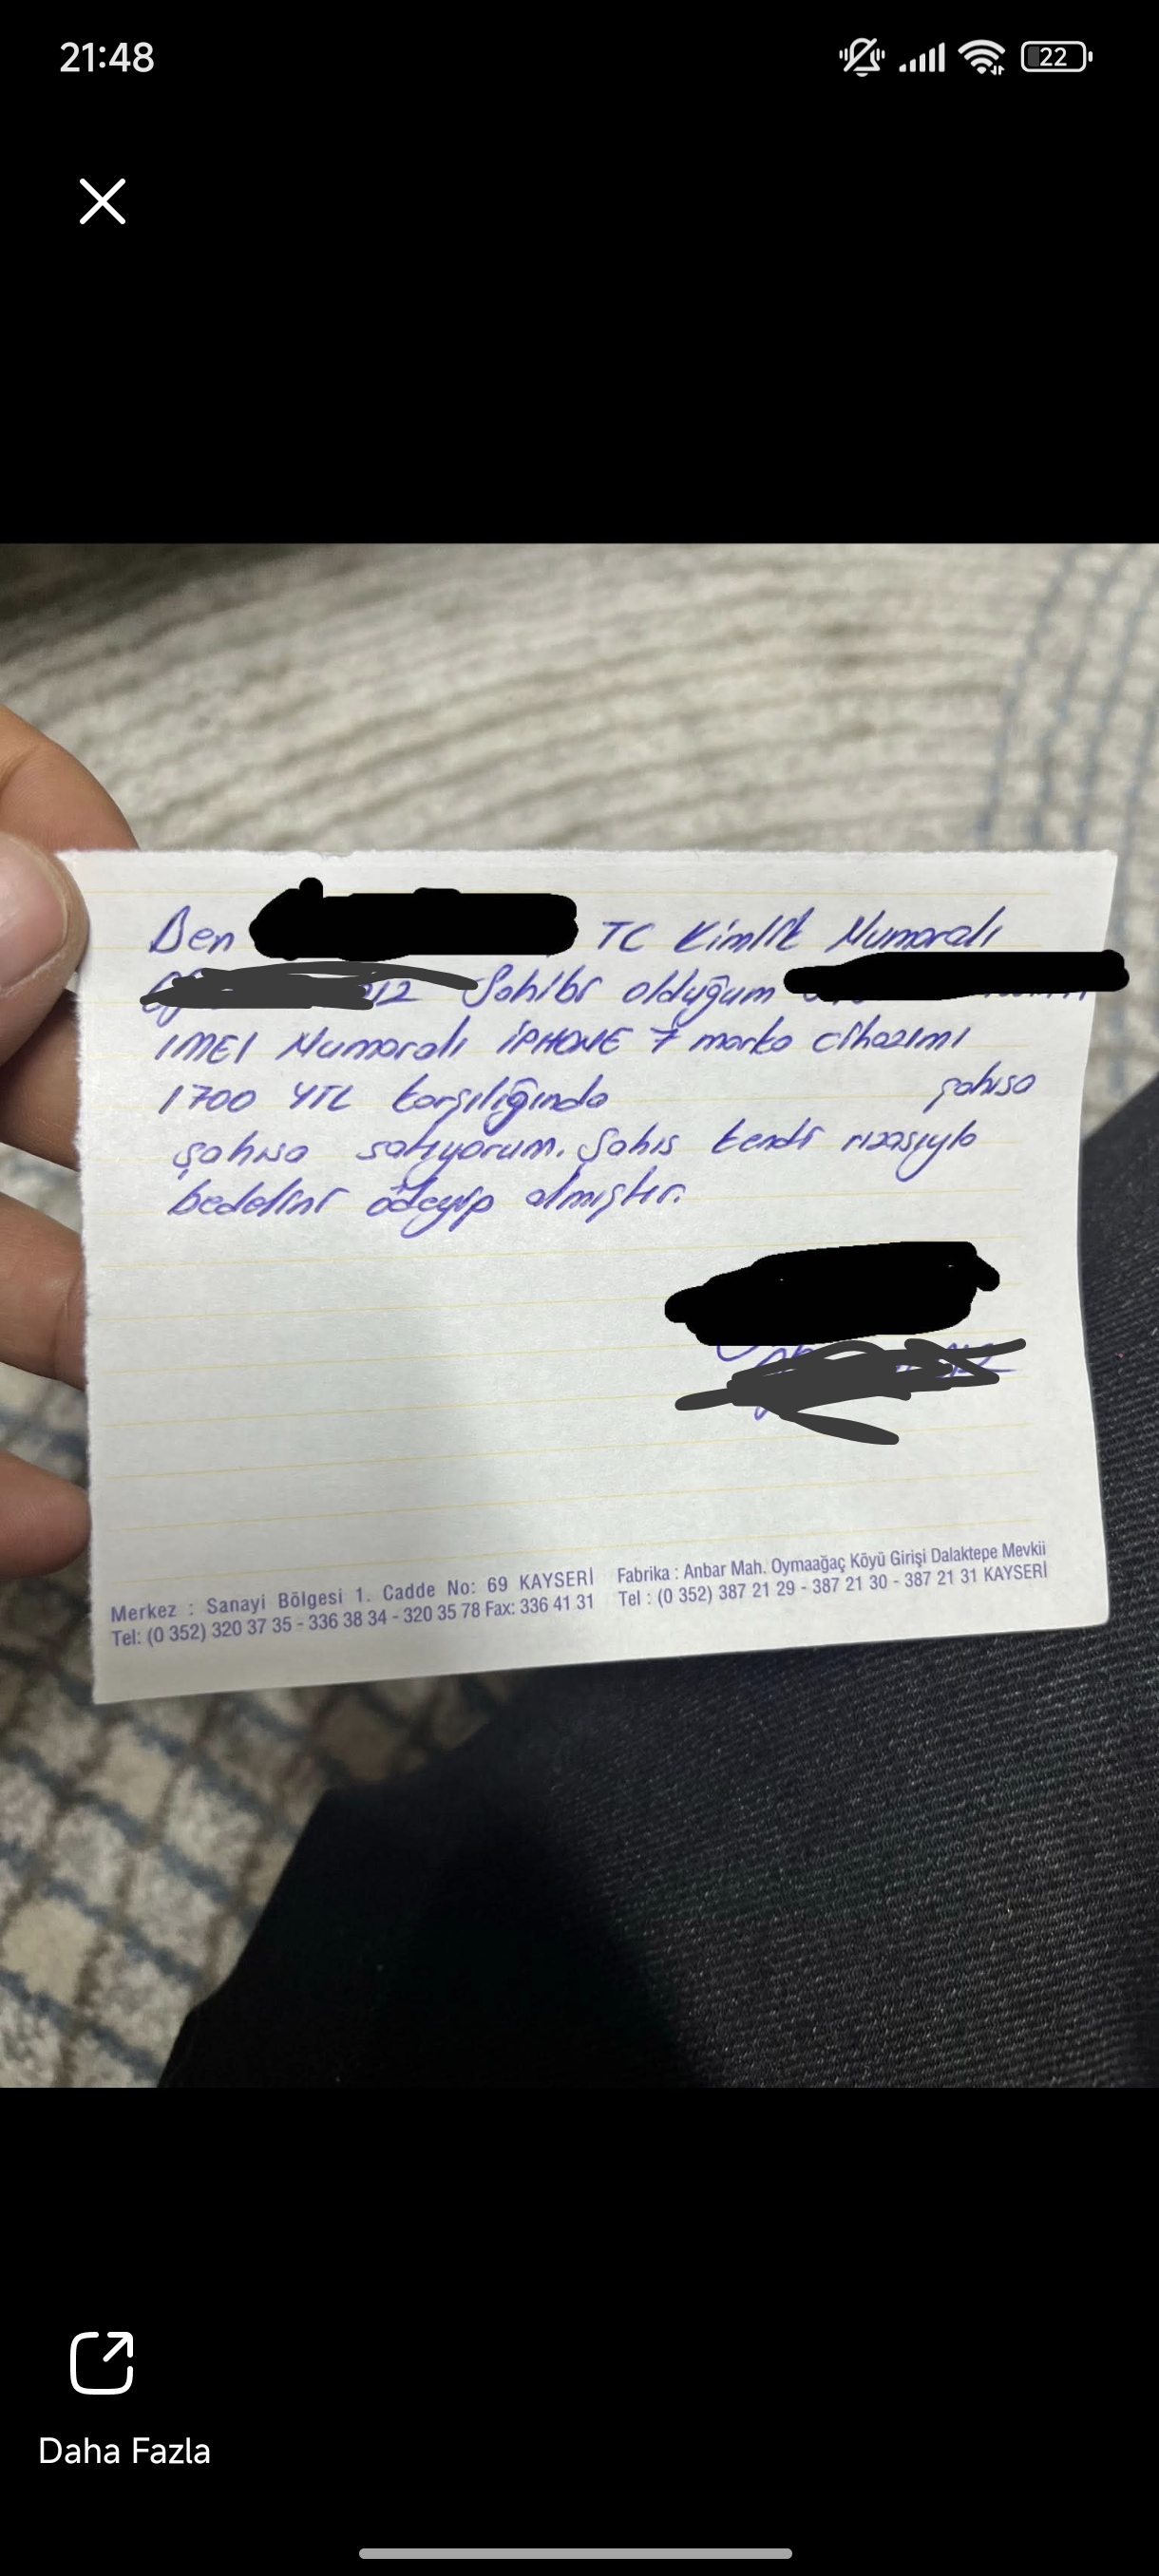 21:48
22
Ben TC Kimlik Numaralı
Sahibi olduğum
IMEI Numaralı iPHONE 7 marka cihazımı
1700 YTL karşılığında şahısa
şahısa satıyorum. Şahıs kendi rızasıyla
bedelini ödeyip almıştır.
Merkez : Sanayi Bölgesi 1. Cadde No: 69 KAYSERİ
Tel: (0 352) 320 37 35 - 336 38 34 - 320 35 78 Fax: 336 41 31
Fabrika : Anbar Mah. Oymaağaç Köyü Girişi Dalaktepe Mevkii
Tel : (0 352) 387 21 29 - 387 21 30 - 387 21 31 KAYSERİ
Daha Fazla